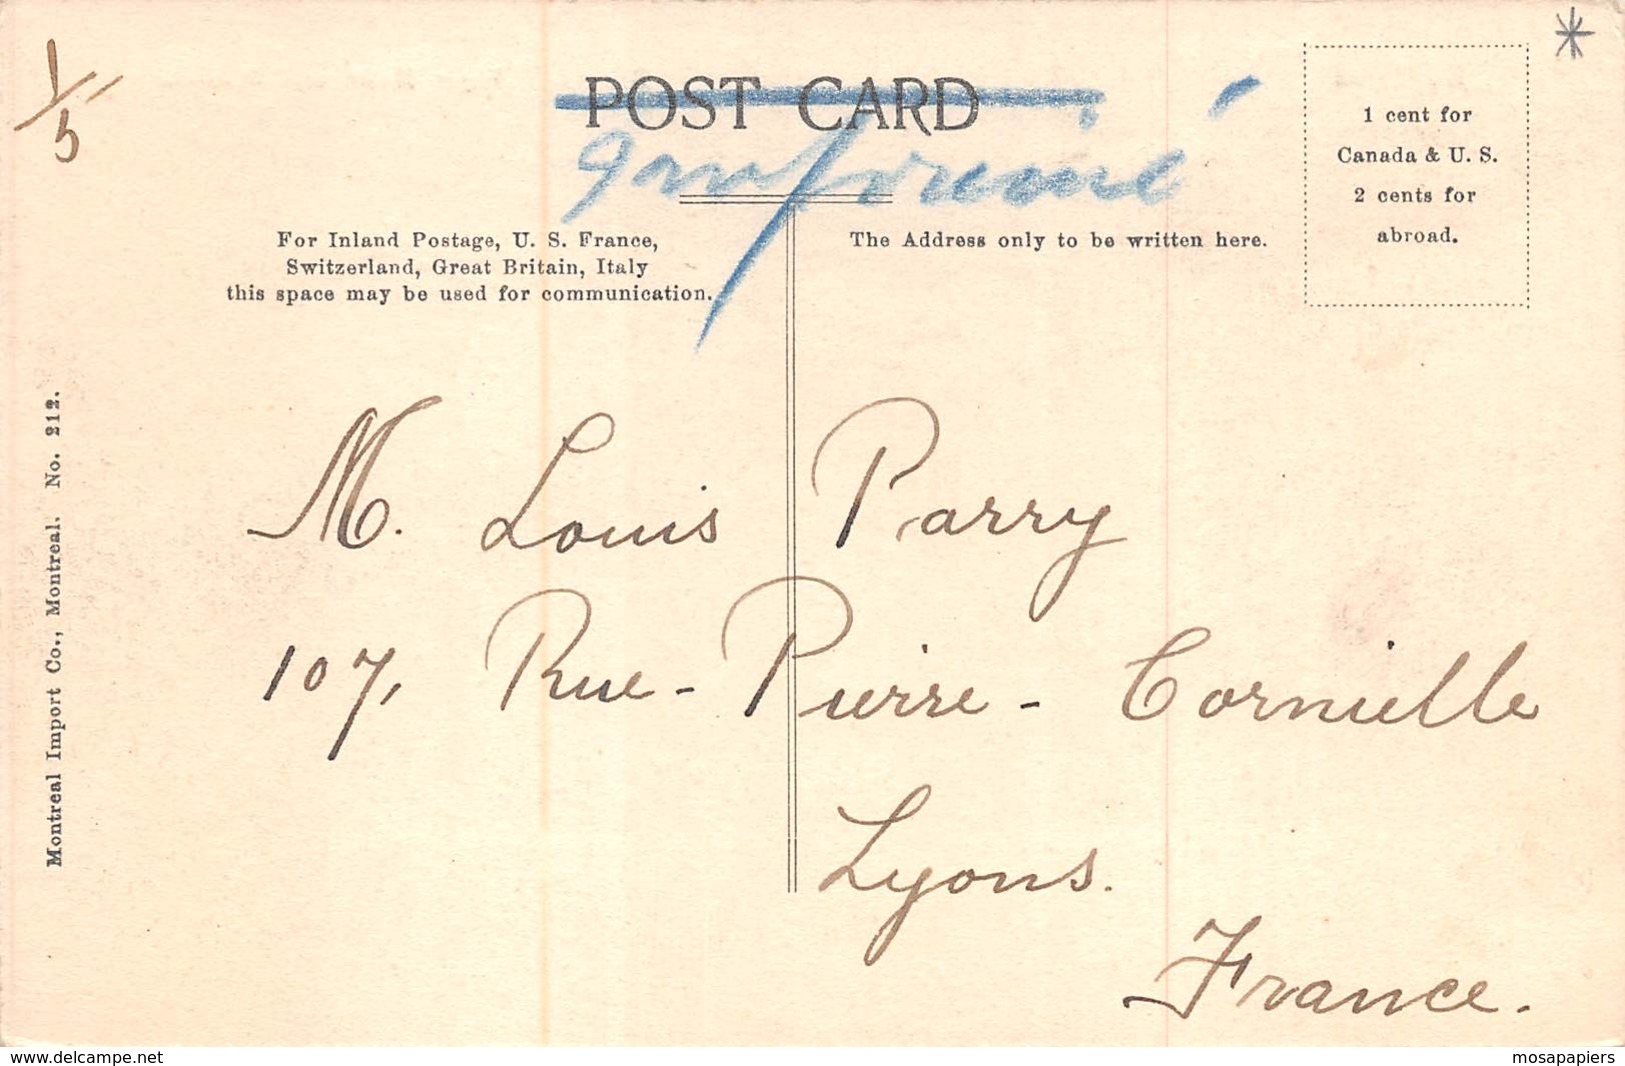 1/5
*
POST CARD
1 cent for
Canada & U. S.
2 cents for
abroad.
For Inland Postage, U. S. France,
Switzerland, Great Britain, Italy
this space may be used for communication.
The Address only to be written here.
Montreal Import Co., Montreal. No. 212.
M. Louis Parry
107, Rue - Pierre - Corneille
Lyons.
France.
www.delcampe.net
mosapapiers